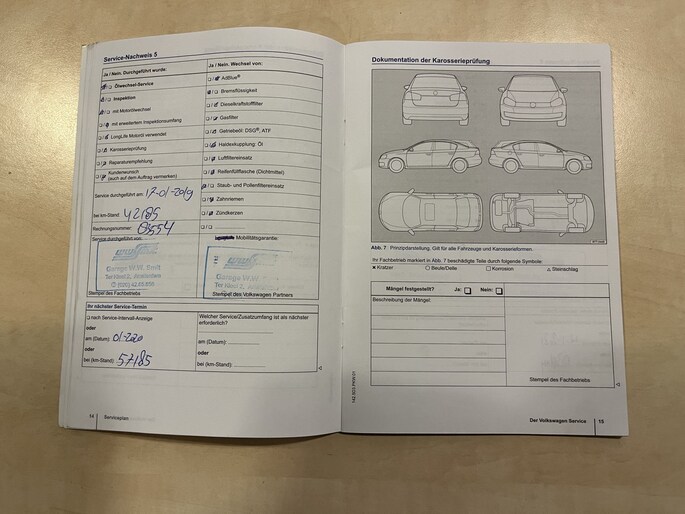 Service-Nachweis 5
Ja / Nein. Durchgeführt wurde:
Ölwechsel-Service
Inspektion
mit Motorölwechsel
mit erweitertem Inspektionsumfang
LongLife Motoröl verwendet
Karosserieprüfung
Reparaturempfehlung
Kundenwunsch
(auch auf dem Auftrag vermerken)
Service durchgeführt am: 17-01-2019
bei km-Stand: 42185
Rechnungsnummer:
Service durchgeführt von:
Stempel des Fachbetriebs
Ja / Nein. Wechsel von:
AdBlue®
Bremsflüssigkeit
Dieselkraftstofffilter
Gasfilter
Getriebeöl: DSG®, ATF
Haldexkupplung: Öl
Luftfiltereinsatz
Reifenfüllflasche (Dichtmittel)
Staub- und Pollenfiltereinsatz
Zahnriemen
Zündkerzen
Mobilitätsgarantie:
Stempel des Volkswagen Partners
Ihr nächster Service-Termin
nach Service-Intervall-Anzeige
oder
am (Datum):
oder
bei (km-Stand): 57185
Welcher Service/Zusatzumfang ist als nächster
erforderlich?
am (Datum):
oder
bei (km-Stand):
14 Serviceplan
Dokumentation der Karosserieprüfung
Abb. 7 Prinzipdarstellung, Gilt für alle Fahrzeuge und Karosserieformen.
Ihr Fachbetrieb markiert in Abb. 7 beschädigte Teile durch folgende Symbole:
Kratzer
Beule/Delle
Korrosion
Steinschlag
Mängel festgestellt? Ja: Nein:
Beschreibung der Mängel:
Stempel des Fachbetriebs
Der Volkswagen Service 15